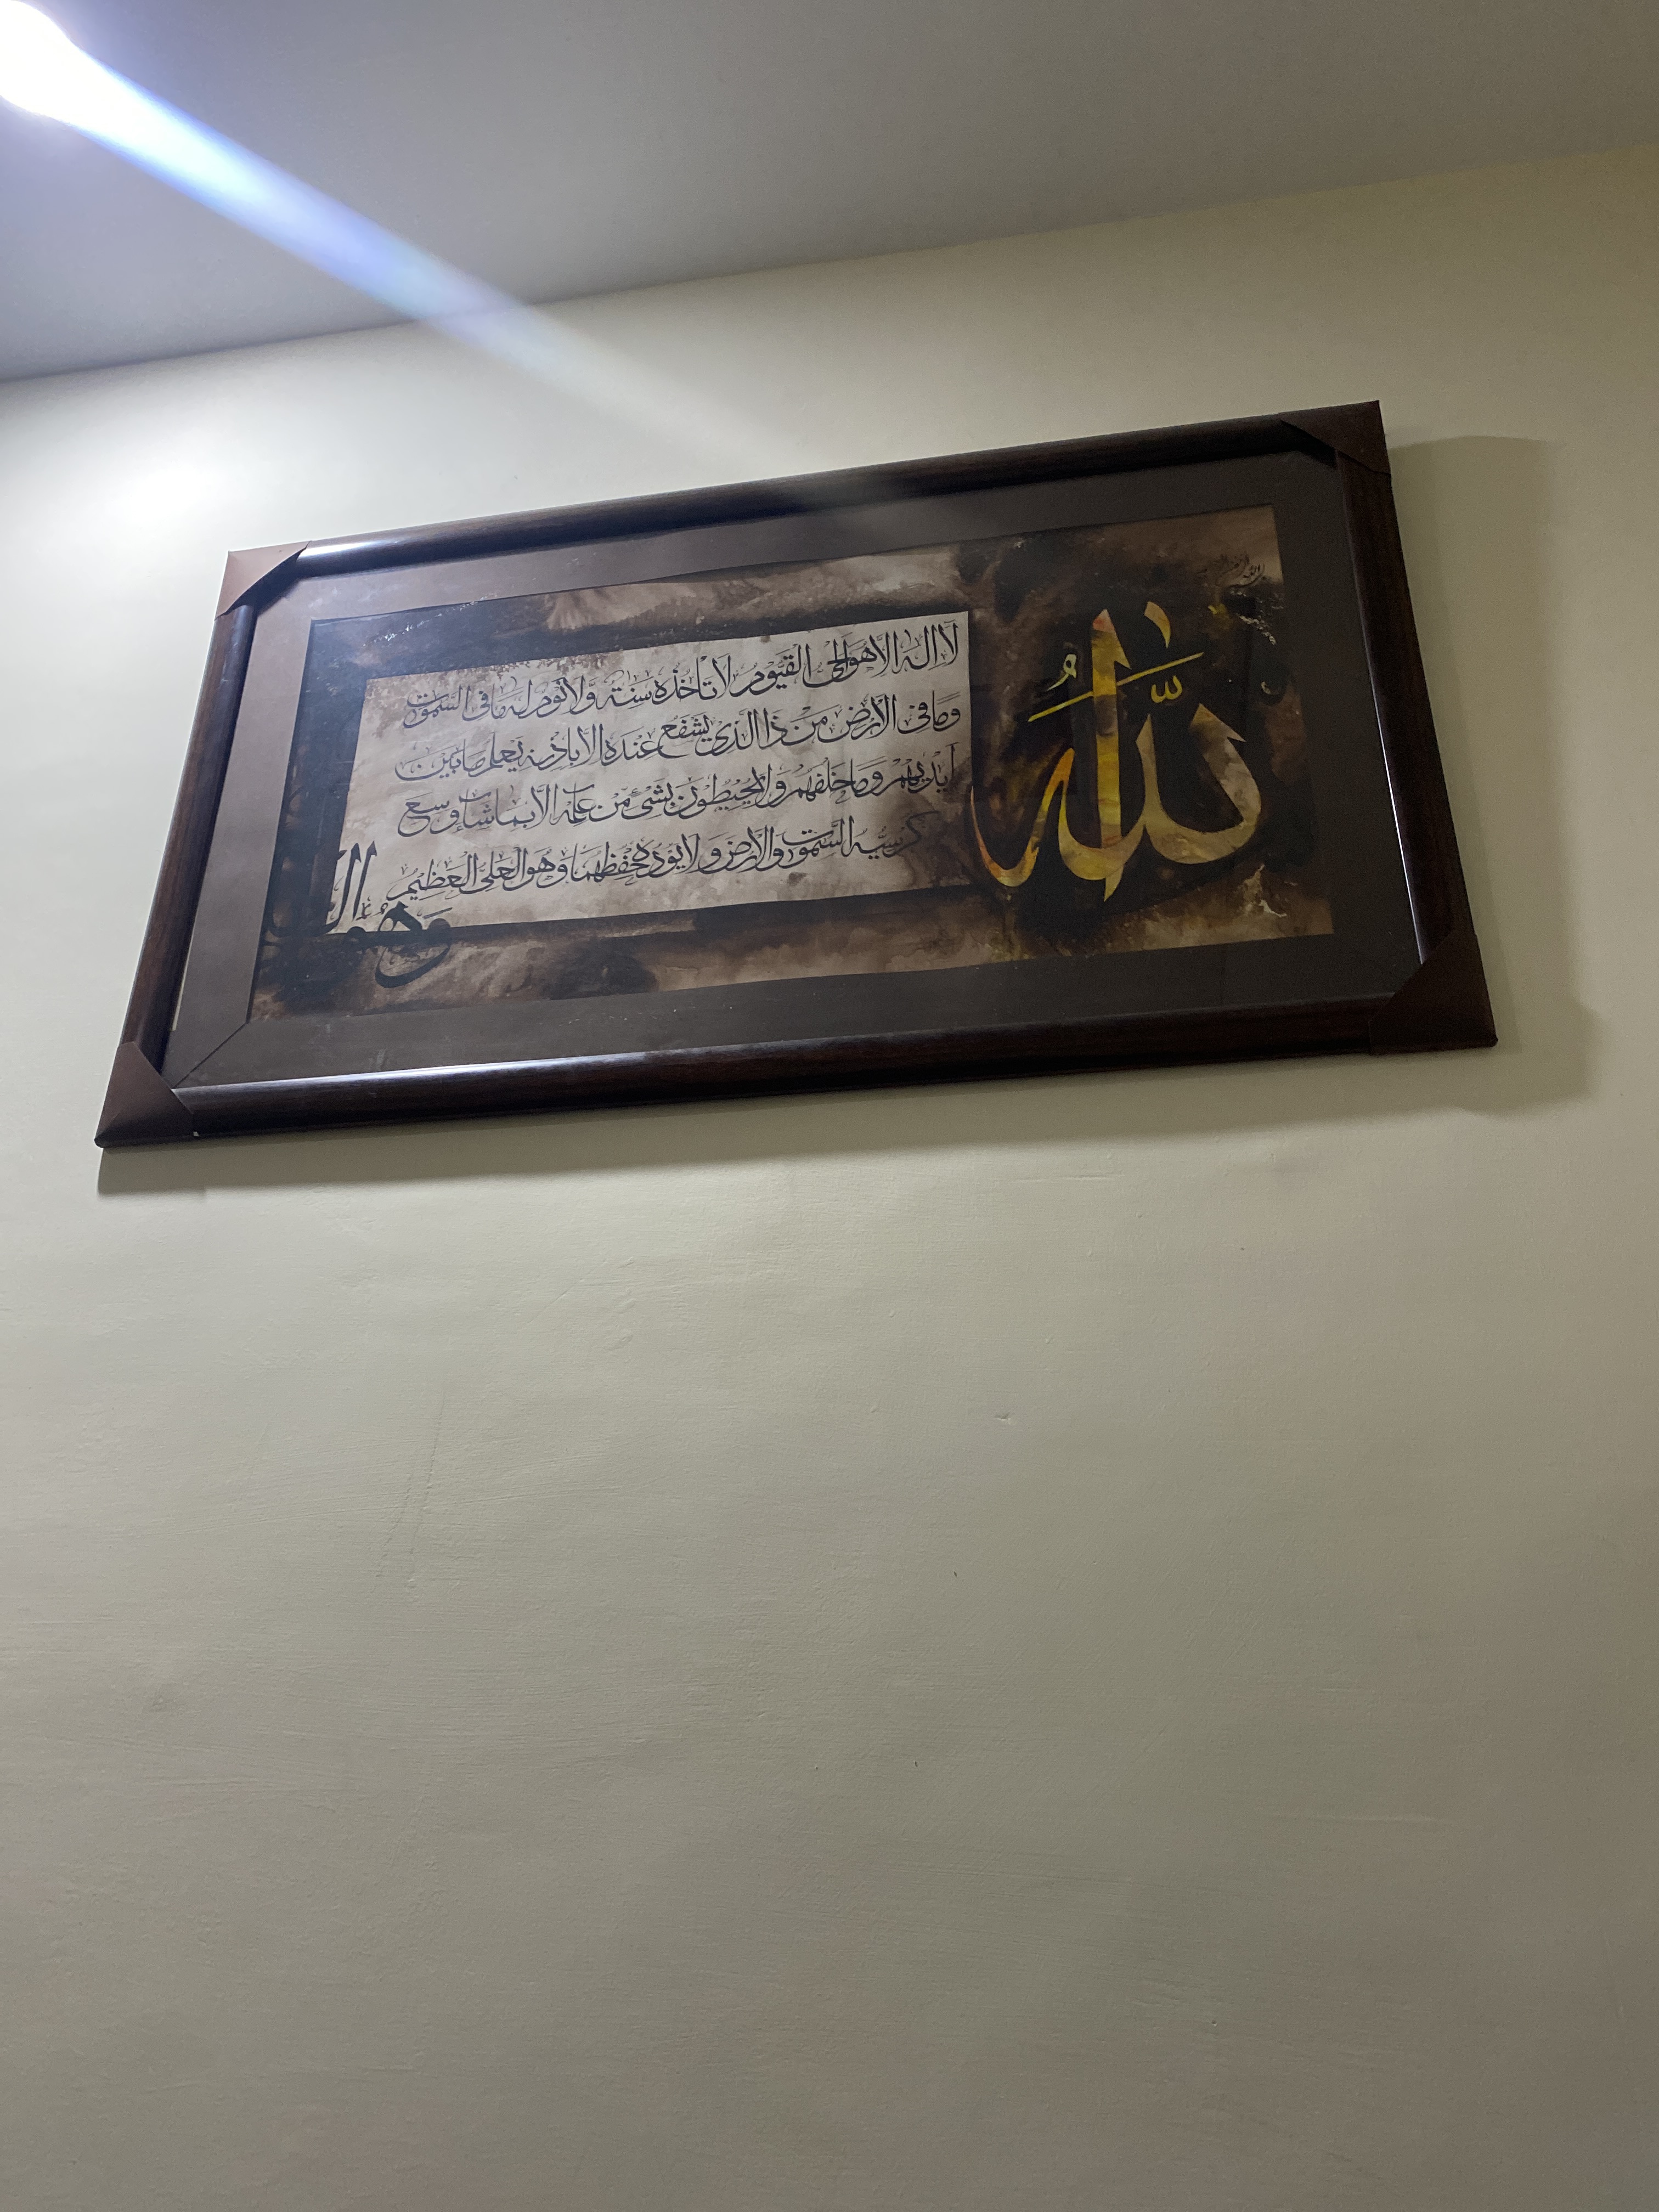 الله
لَا اله الَّا هو الحی القیوم لا تاخذه سنة ولا نوم له ما فی السموت
وما فی الارض من ذا الذی یشفع عنده الا باذنه یعلم ما بین
ایدیهم وما خلفهم ولا یحیطون بشیء من علمه الا بما شاء وسع
کرسیه السموت والارض ولا یوده حفظهما وهو العلی العظیم
وهو